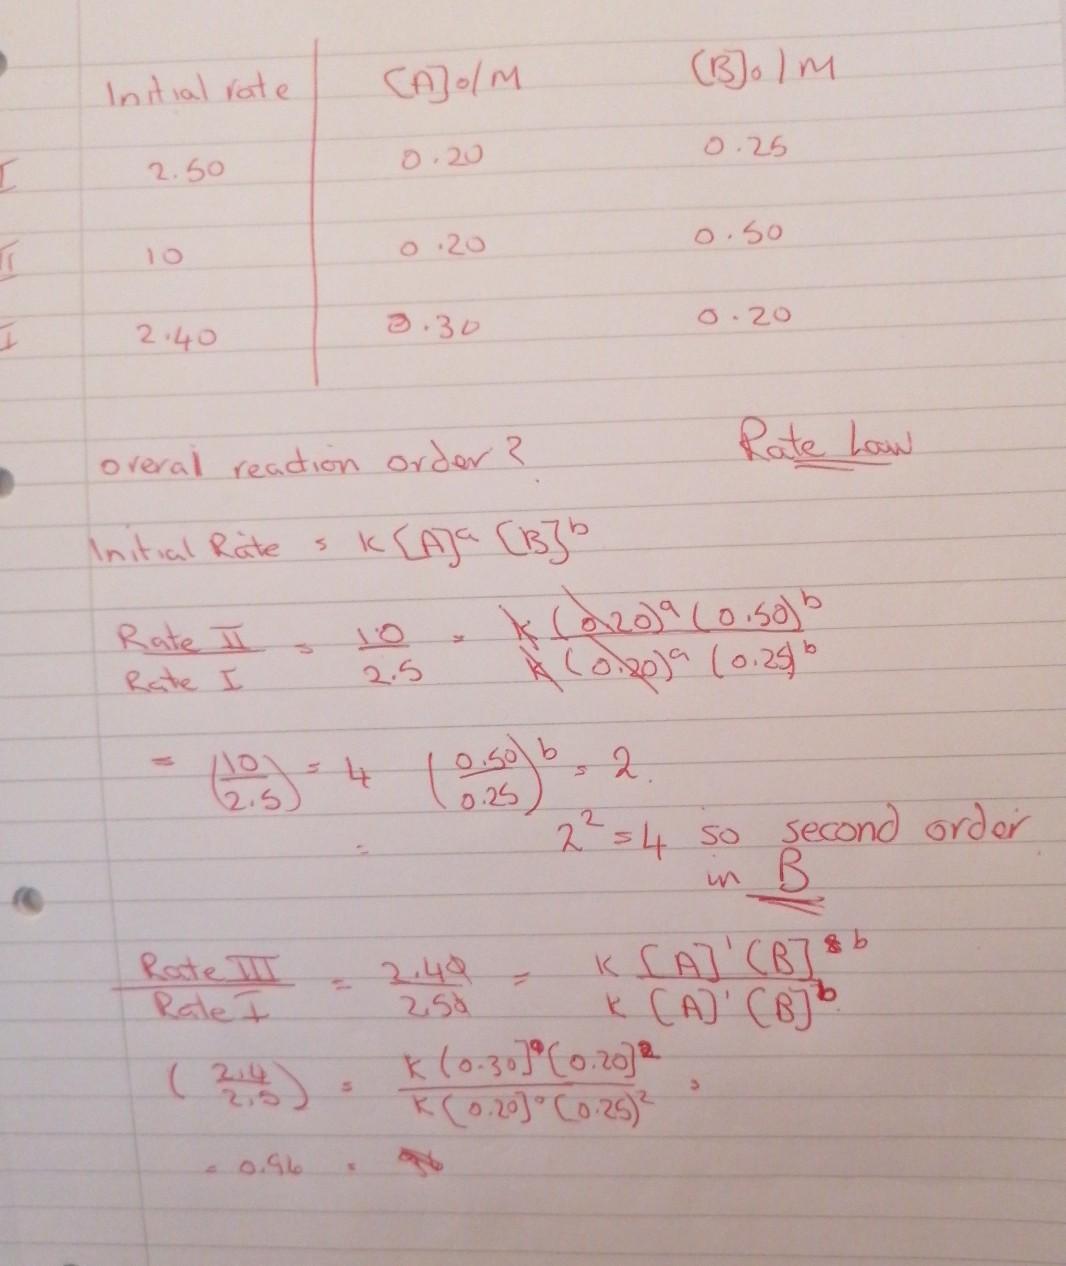 Initial rate [A]o/M [B]o/M
I 2.50 0.20 0.25
II 10 0.20 0.50
I 2.40 0.30 0.20
overal reaction order? Rate Law
Initial Rate = K[A]^a [B]^b
Rate II / Rate I = 10 / 2.5 = k(0.20)^a (0.50)^b / k(0.20)^a (0.25)^b
= (10/2.5) = 4 (0.50/0.25)^b = 2.
= 2^2 = 4 so second order
in B
Rate III / Rate I = 2.40 / 2.50 = K [A]' [B]^b / K [A]' [B]^b
(2.4/2.5) = K(0.30]^a [0.20]^2 / K(0.20]^a (0.25)^2 =
= 0.96 =